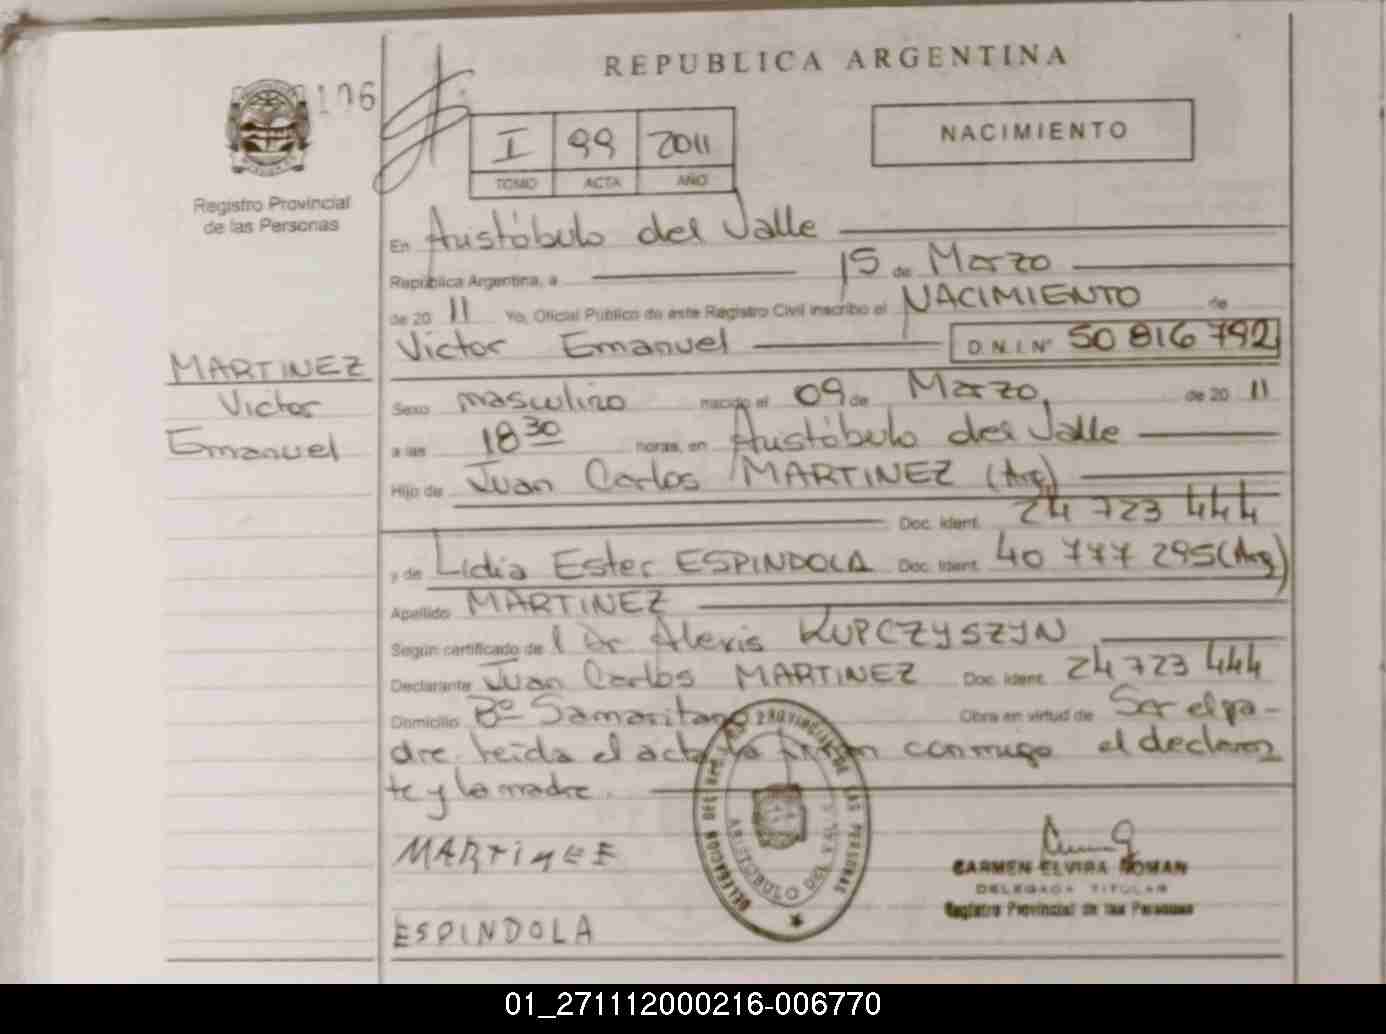 REPUBLICA ARGENTINA
106
I 99 2011
TOMO ACTA AÑO
NACIMIENTO
Registro Provincial
de las Personas
En Aristóbulo del Valle
República Argentina, a 15 de Marzo
de 20 11 Yo, Oficial Público de este Registro Civil inscribo el NACIMIENTO de
Victor Emanuel D.N.I. N° 50 816 792
MARTINEZ
Victor
Emanuel
Sexo masculino nacido el 09 de Marzo de 20 11
a las 18 30 horas, en Aristóbulo del Valle
Hijo de Juan Carlos MARTINEZ (Arg)
Doc. Ident. 24 723 444
y de Lidia Ester ESPINDOLA Doc. Ident. 40 777 295 (Arg)
Apellido MARTINEZ
Según certificado de l Dr Alexis KUPCZYSZYN
Declarante Juan Carlos MARTINEZ Doc. Ident. 24 723 444
Domicilio Bº Samaritano Obra en virtud de Ser el pa-
dre. Leída el acta la firman conmigo el declaran
te y la madre.
MARTiNEZ
ESPINDOLA
DELEGACION DEL REG. PROVINCIAL DE LAS PERSONAS
ARISTOBULO DEL VALLE
CARMEN ELVIRA ROMAN
DELEGADA TITULAR
Registro Provincial de las Personas
01_271112000216-006770